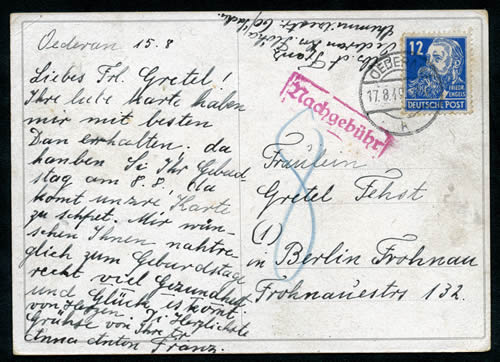 Oederan 15.8
Liebes Frl. Gretel!
Ihre liebe Karte haben
mir mit besten
Dan erhalten. da
hanben Si Ihr Geburd-
stag am 8.8, da
komt unzre Karte
zu schpet. Mir wün-
schen Ihnen nahtre-
glich zum Geburdstage
recht viel Gezundheit
und Glück, is komt
von Herzen. Di Herzlichste
Grühse von Ihre Fr
Anna Anton Franz.
Franz
Oederan
12
FRIEDR.
ENGELS
DEUTSCHE POST
OEDERAN
17.8.49
A
Nachgebühr
8
Fräulein
Gretel Fehst
(1)
in Berlin Frohnau
Frohnauestrs 132.